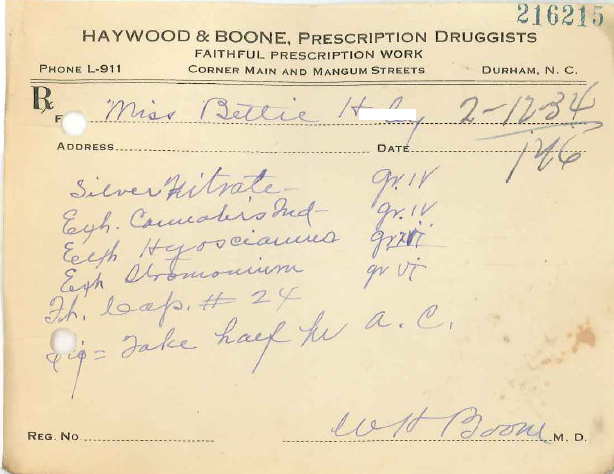 216215
HAYWOOD & BOONE, PRESCRIPTION DRUGGISTS
FAITHFUL PRESCRIPTION WORK
PHONE L-911 CORNER MAIN AND MANGUM STREETS DURHAM, N. C.
℞
F Miss Bettie H 2-12-34
ADDRESS DATE
Silver Nitrate - gr. IV
Exh. Cannabis Ind - gr. IV
Exh Hyosciamus gr VI
Exh Stromonium gr VI
Ft. Caps. # 24
Sig = Take half hr a. c.
W H Boone M. D.
REG. NO.